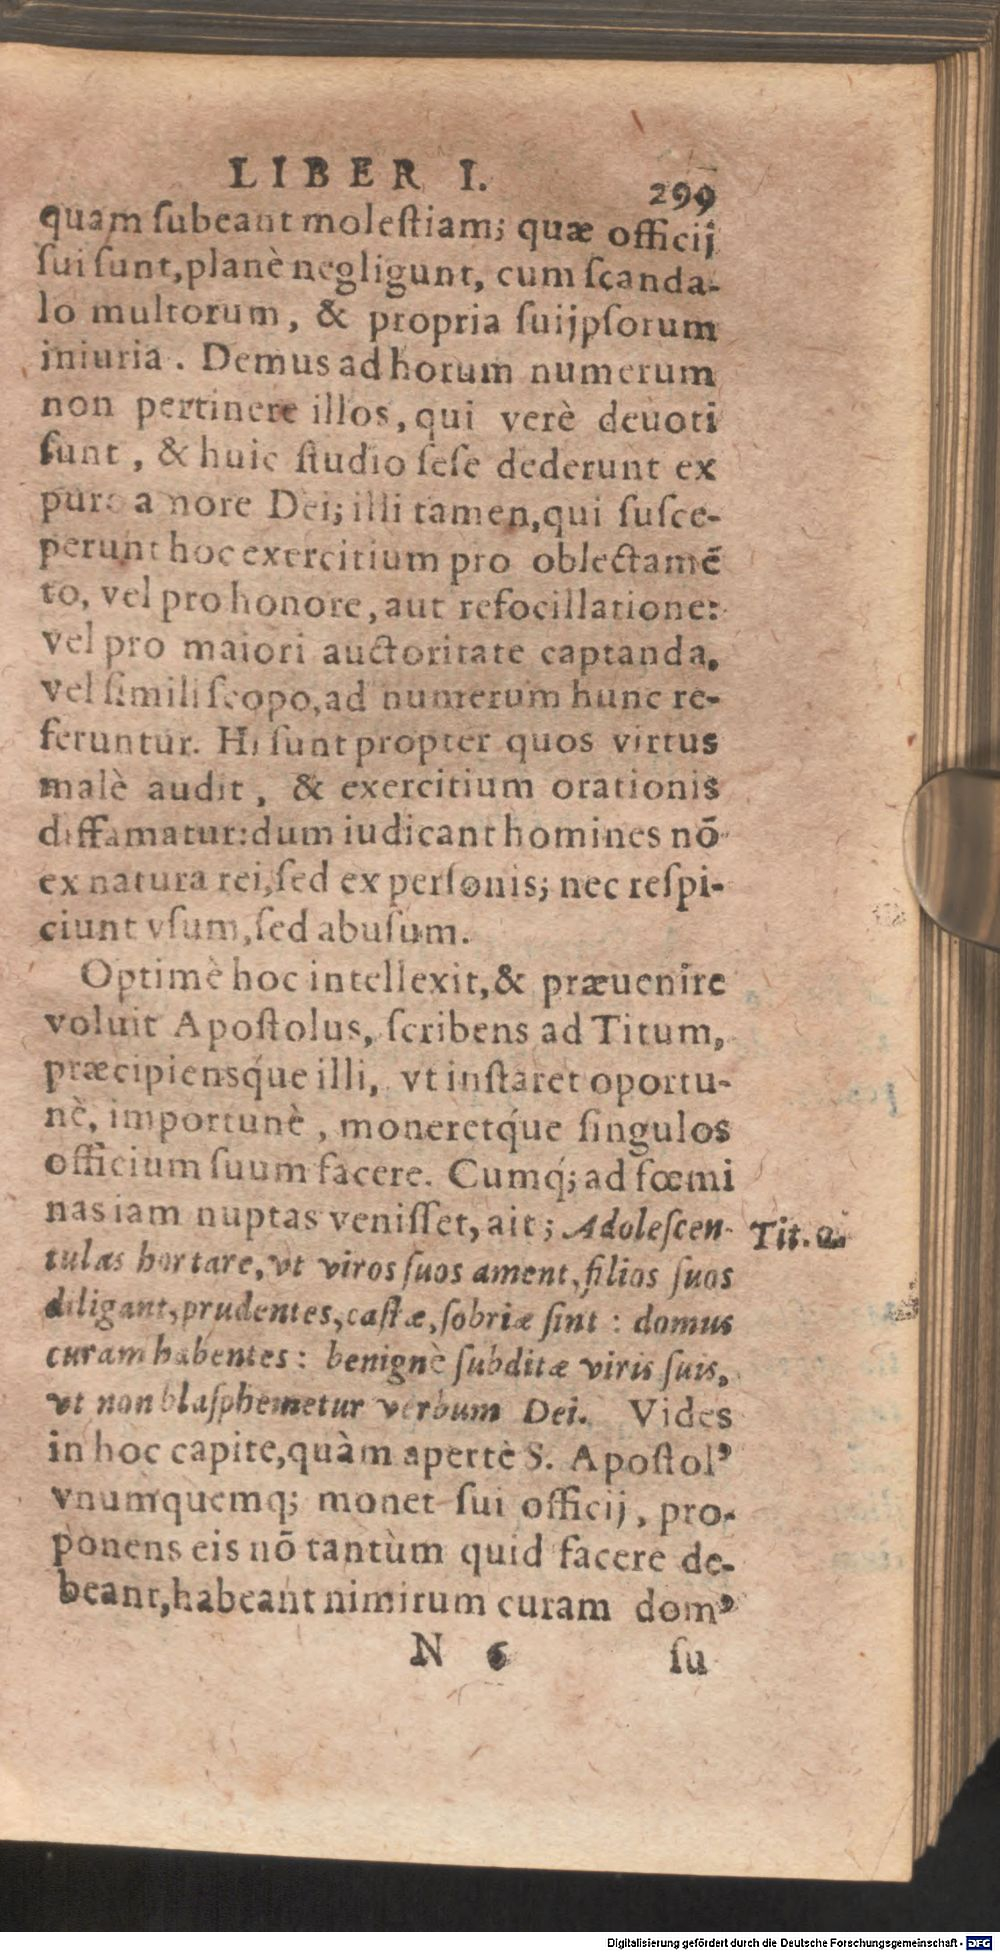 LIBER I. 299
quam ſubeant moleſtiam; quæ officij
ſui ſunt, planè negligunt, cum ſcanda-
lo multorum, & propria ſuijpſorum
iniuria. Demus ad horum numerum
non pertinere illos, qui verè deuoti
ſunt, & huic ſtudio ſeſe dederunt ex
puro amore Dei; illi tamen, qui ſuſce-
perunt hoc exercitium pro oblectamẽ
to, vel pro honore, aut refocillatione:
vel pro maiori auctoritate captanda,
vel ſimili ſcopo, ad numerum hunc re-
feruntur. Hi ſunt propter quos virtus
malè audit, & exercitium orationis
diffamatur: dum iudicant homines nõ
ex natura rei, ſed ex perſonis; nec reſpi-
ciunt vſum, ſed abuſum.
Optimè hoc intellexit, & præuenire
voluit Apoſtolus, ſcribens ad Titum,
præcipiensq́ue illi, vt inſtaret oportu-
nè, importunè, moneretq́ue ſingulos
officium ſuum facere. Cumq́; ad fœmi
nas iam nuptas veniſſet, ait; Adoleſcen-
Tit. 2.
tulas hortare, vt viros ſuos ament, filios ſuos
diligant, prudentes, caſtæ, ſobriæ ſint: domus
curam habentes: benignè ſubditæ viris ſuis,
vt non blaſphemetur verbum Dei. Vides
in hoc capite, quàm apertè S. Apoſtolꝰ
vnumquemq; monet ſui officij, pro-
ponens eis nõ tantùm quid facere de-
beant, habeant nimirum curam domꝰ
N 6 ſu
Digitalisierung gefördert durch die Deutsche Forschungsgemeinschaft - DFG